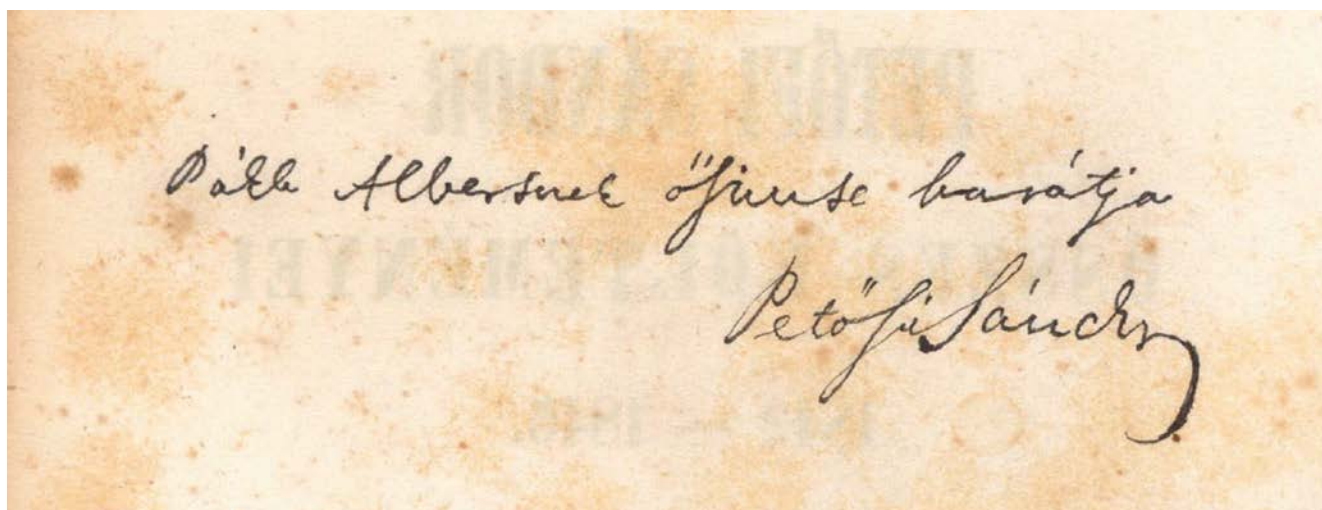 Pákh Albertnek őszinte barátja
Petőfi Sándor